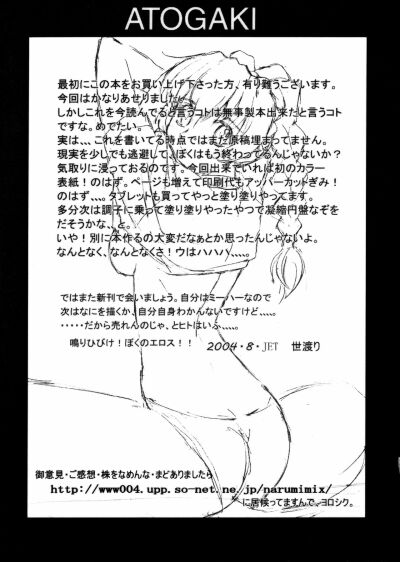 ATOGAKI
最初にこの本をお買い上げ下さった方、有り難うございます。
今回はかなりあせりました。
しかしこれを今読んでると言うコトは無事製本出来たと言うコト
ですな。めでたい。
実は、、、これを書いてる時点ではまだ原稿埋まってません。
現実を少しでも逃避して、ぼくはもう終わってるんじゃないか?
気取りに浸っておるのです。今回出来ていれば初のカラー
表紙!のはず。ページも増えて印刷代もアッパーカットぎみ!
のはず、、、。タブレットも買ってやっと塗り塗りやってます。
多分次は調子に乗って塗り塗りやったやつで凝縮円盤なぞを
だそうかな、、と。
いや!別に本作るの大変だなぁとか思ったんじゃないよ。
なんとなく、なんとなくさ!ウはハハハ、、、、。
ではまた新刊で会いましょう。自分はミーハーなので
次はなにを描くか、自分自身わかんないですけど、、、、。
・・・・・だから売れんのじゃ、とヒトはいふ、、、、。
鳴りひびけ!ぼくのエロス!! 2004・8・JET 世渡り
御意見・ご感想・株をなめんな・まどありましたら
http://www004.upp.so-net.ne.jp/narumimix/
に居候ってますんで、ヨロシク。